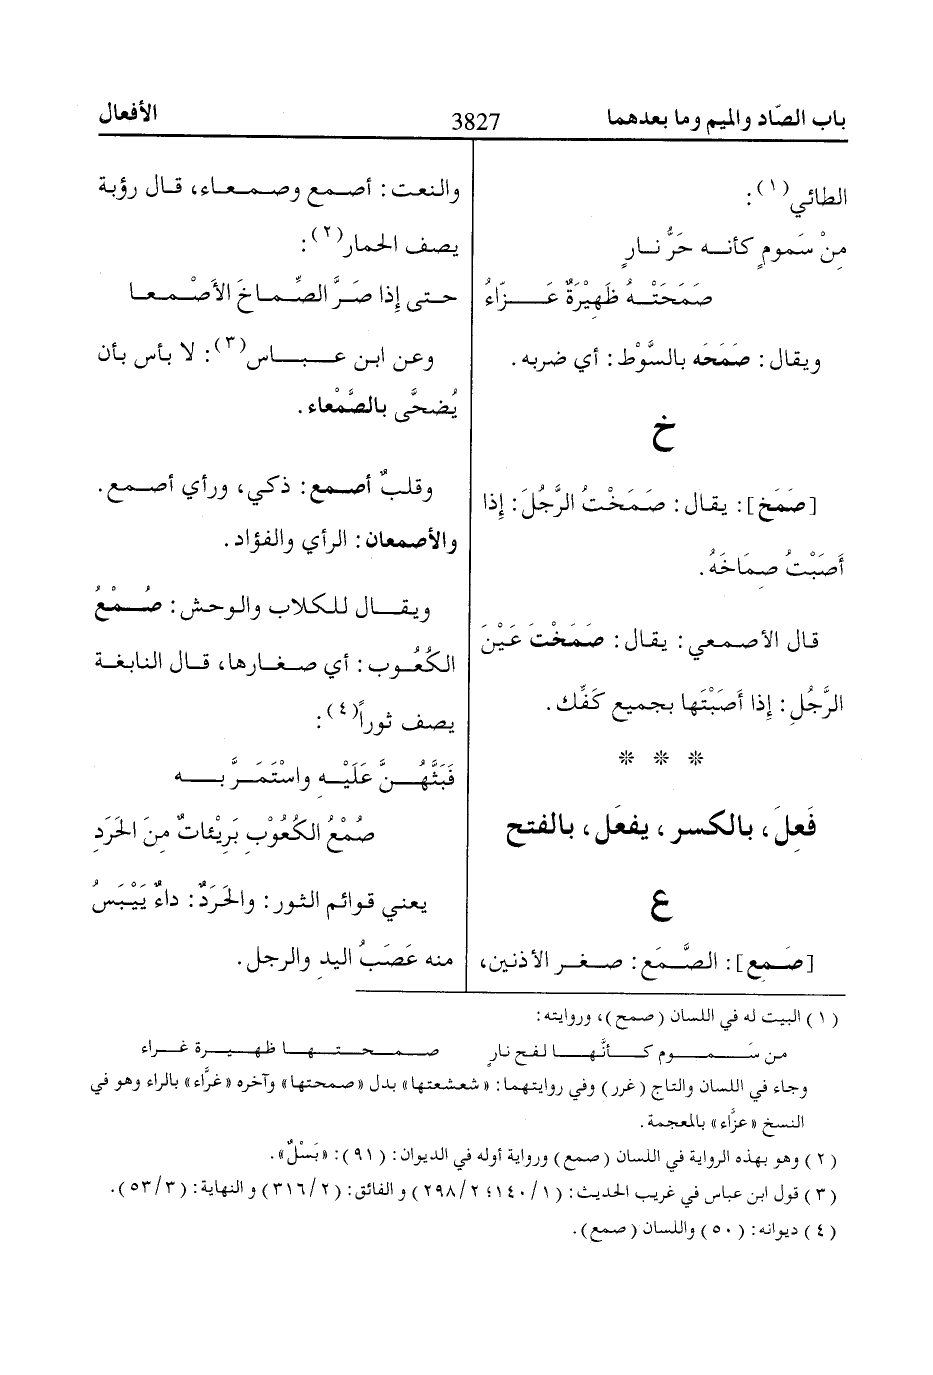 باب الصّاد والميم وما بعدهما
3827
الأفعال
الطائي(١):
مِنْ سَمومٍ كأنــه حَرُّ نــارٍ
صَمَحَتْــهُ ظَهِيْرَةٌ عَــزّاءُ
ويقال: صَمَحَه بالسَّوْط: أي ضربه.
خ
[صَمَخ]: يقال: صَمَخْتُ الرَّجُلَ: إِذا
أَصَبْتُ صِمَاخَهُ.
قال الأصمعي: يقال: صَمَخْتَ عَيْنَ
الرَّجُلِ: إِذا أَصَبْتَها بجميع كَفِّك.
* * *
فَعِلَ، بالكسر، يفعَل، بالفتح
ع
[صَمِع]: الصَّمَع: صغر الأذنين،
والنعت: أصمع وصمعاء، قال رؤبة
يصف الحمار(٢):
حتى إِذا صَرَّ الصِّماخَ الأَصْمعا
وعن ابن عباس(٣): لا بأس بأن
يُضحَّى بالصَّمْعاء.
وقلبٌ أصمع: ذكي، ورأي أصمع.
والأصمعان: الرأي والفؤاد.
ويقال للكلاب والوحش: صُمْعُ
الكُعُوب: أي صغارها، قال النابغة
يصف ثوراً(٤):
فَبَثَّهُنَّ عَلَيْه واسْتَمَرَّ بــه
صُمْعُ الكُعُوْبِ بَرِيْئاتٌ مِنَ الحَرَدِ
يعني قوائم الثور: والحَرَدُ: داءٌ يَيْبَسُ
منه عَصَبُ اليدِ والرجل.
(١) البيت له في اللسان (صمح)، وروايته:
من سَمــوم كــأنَّهــا لفح نارٍ صمحتــها ظهيــرة غــراء
وجاء في اللسان والتاج (غرر) وفي روايتهما: «شعشعتها» بدل «صمحتها» وآخره «غرَّاء» بالراء وهو في
النسخ «عزَّاء» بالمعجمة.
(٢) وهو بهذه الرواية في اللسان (صمع) ورواية أوله في الديوان: (٩١): «بَسْلٌ».
(٣) قول ابن عباس في غريب الحديث: (١/١٤٠؛ ٢/٢٩٨) و الفائق: (٢/٣١٦) و النهاية: (٣/٥٣).
(٤) ديوانه: (٥٠) واللسان (صمع).